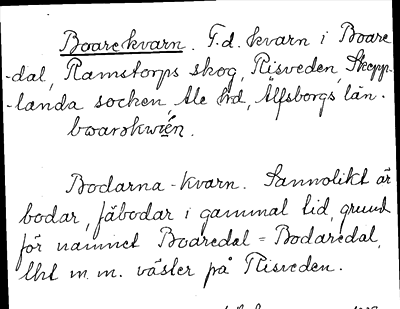 Boarekvarn. F.d. kvarn i Boare
-dal, Ramstorps skog, Risveden, Skepp-
-landa socken, Ale hd, Älfsborgs län.
boarskwién.
Bodarna-kvarn. Sannolikt är
bodar, fäbodar i gammal tid, grund
för namnet Boaredal = Bodaredal,
Uhl m. m. väster på Risveden.